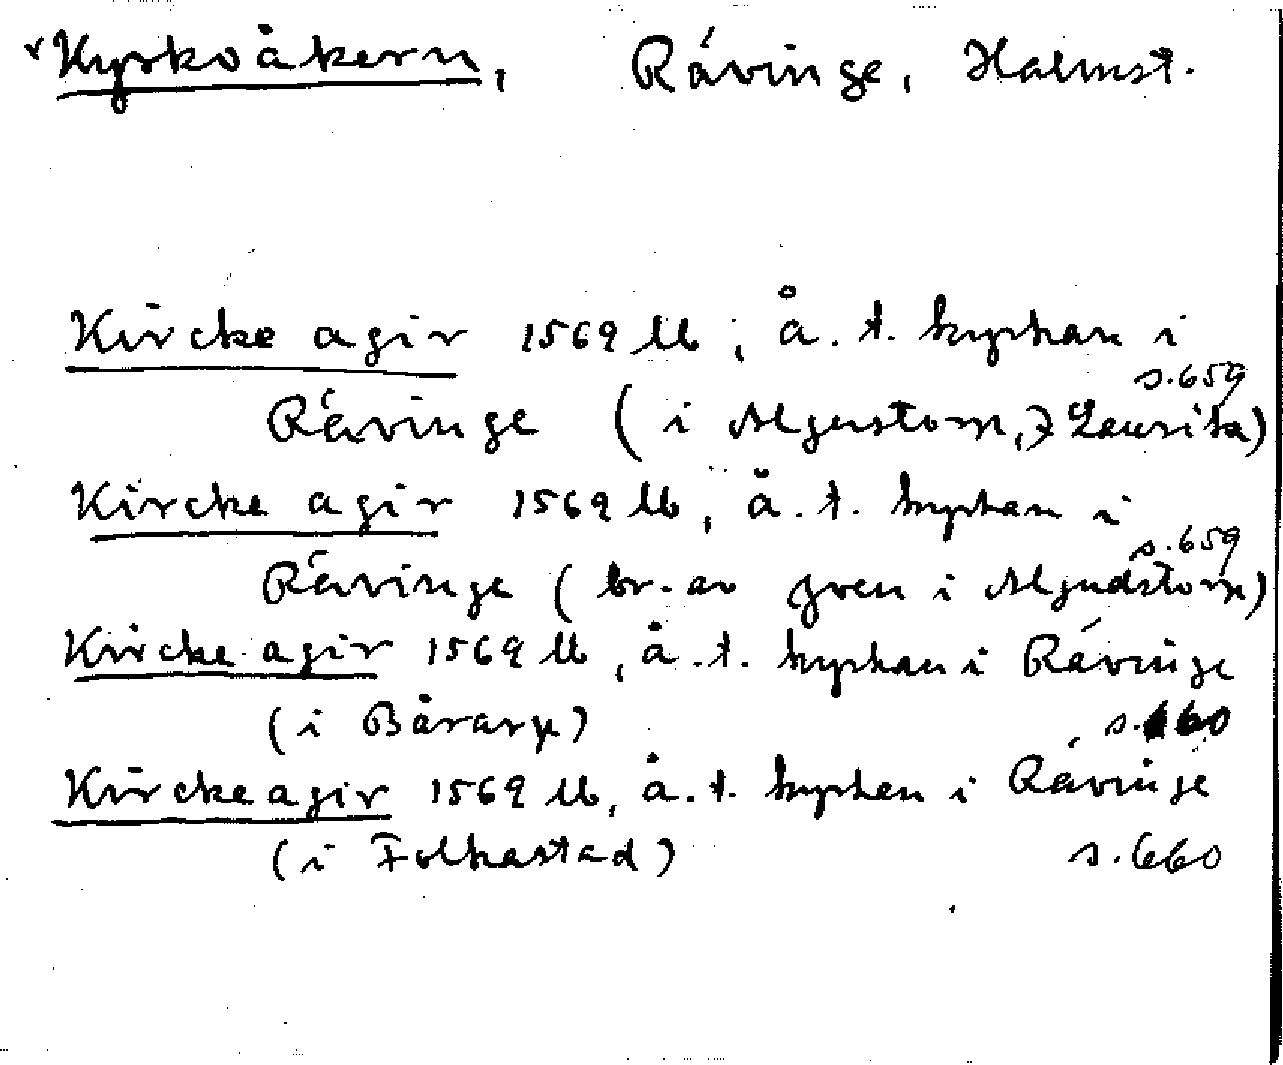 v Kyrkoåkern, Rávinge, Halmst.
Kircke agir 1569 lb, å. t. kyrkan i
s.659
Rávinge (i Algustorp, J Laurits)
Kircke agir 1569 lb, å. t. kyrkan i
s.659
Rávinge (br. av Jven i Algudstorp)
Kircke agir 1569 lb, å. t. kyrkan i Rávinge
(i Bårarp) s.660
Kircke agir 1569 lb, å. t. kyrkan i Rávinge
(i Folkastad) s.660